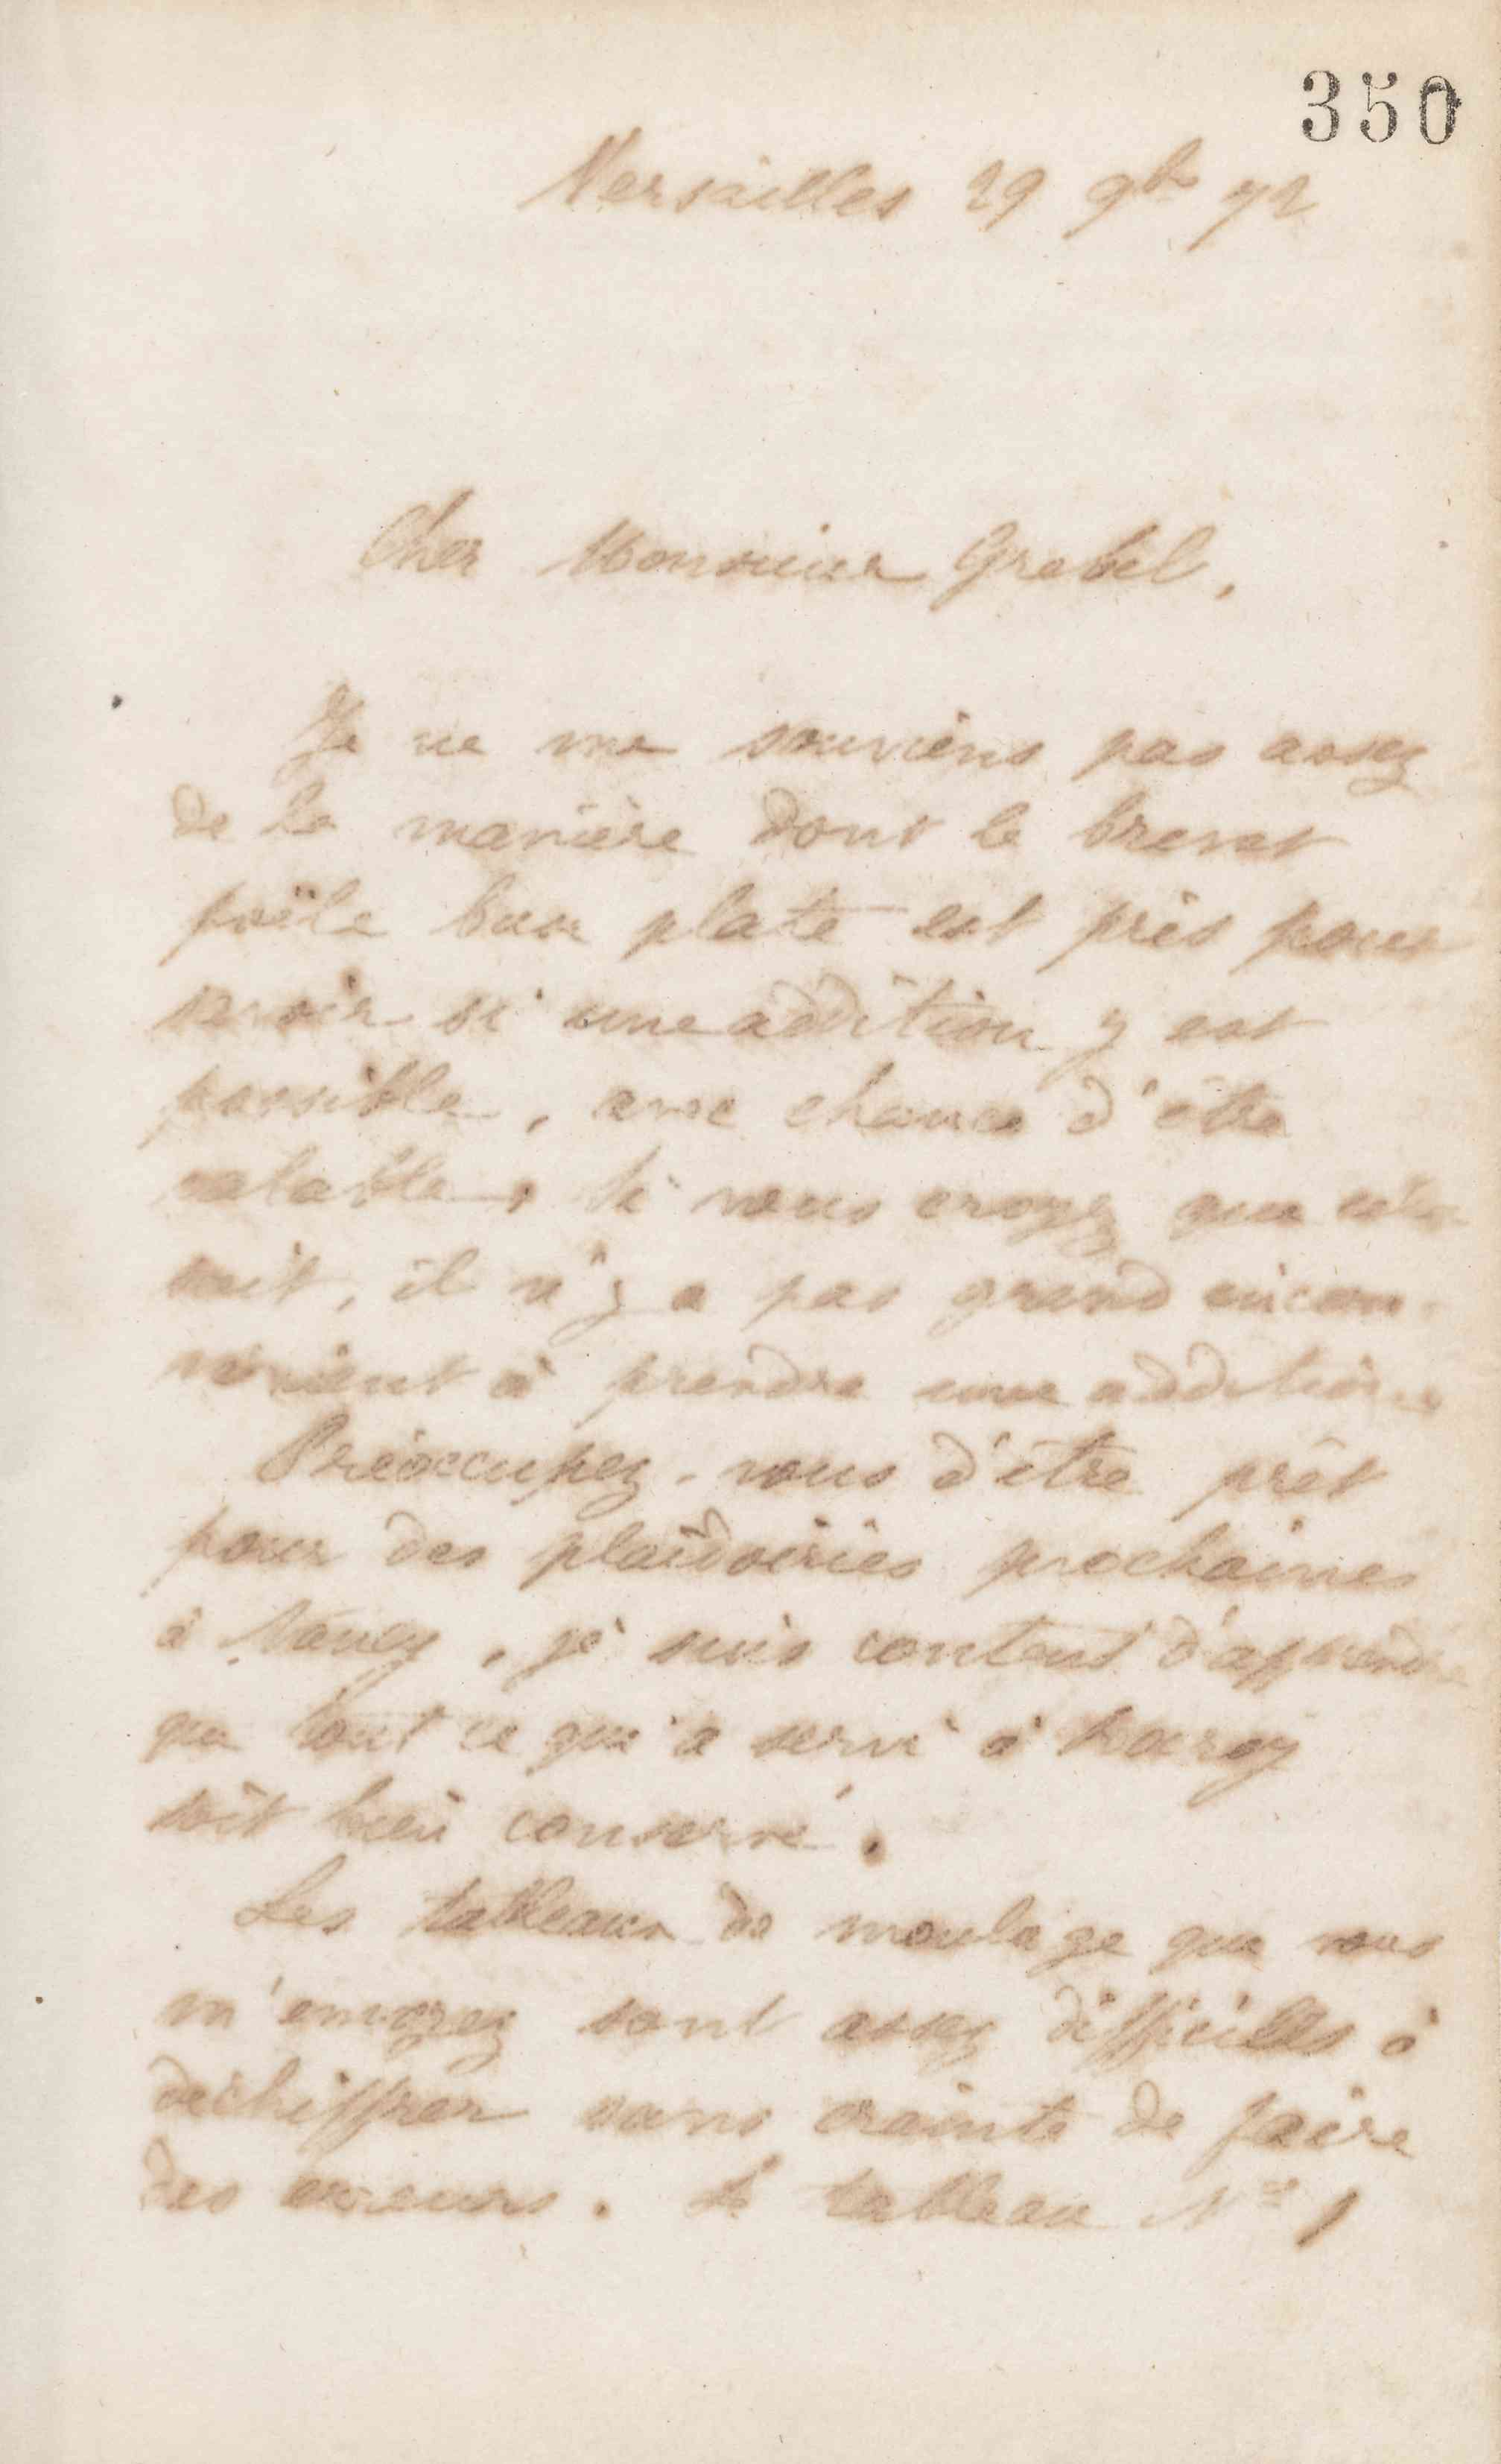 350
Versailles 29 9bre 72
Cher Monsieur Grebel,
Je ne me souviens pas assez
de la manière dont le brevet
poële buse plate est pris pour
savoir si une addition y est
possible, avec chance d'être
valable, si vous croyez que cela
soit, il n'y a pas grand incon-
vénient à prendre une addition.
Préoccupez-vous d'être prêt
pour des plaidoiries prochaines
à Nancy, je suis content d'apprendre
que tout ce qui a servi à
soit bien conservé.
Les tableaux de moulage que vous
m'envoyez sont assez difficiles à
déchiffrer sans crainte de faire
des erreurs. Le tableau No 1